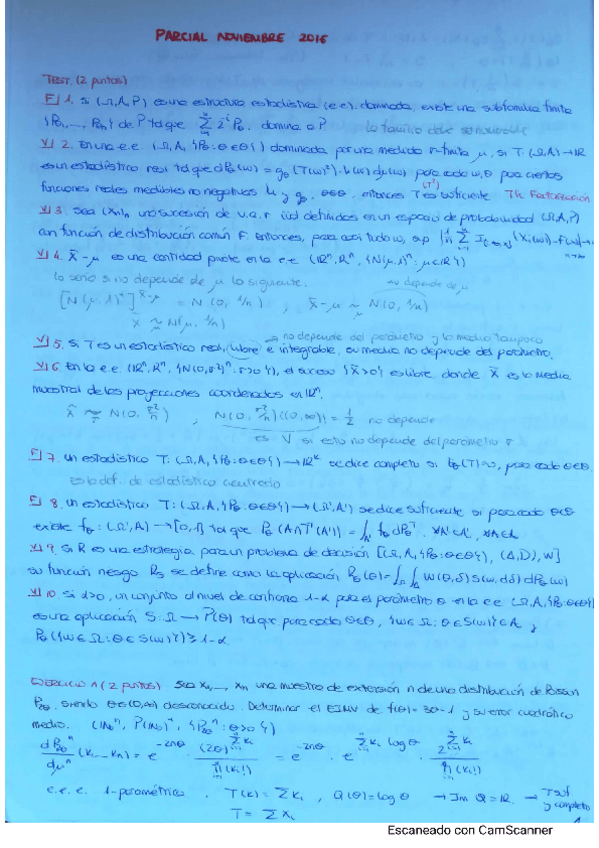 PARCIAL NOVIEMBRE 2016
TEST. (2 puntos)
F 1. Si (Ω,A,P) es una estructura estadística (e.e). dominada, existe una subfamilia finita
{Pn1,..., Pnn} de P tal que Σ 2^i Pn. domina a P La familia debe ser numerable
V 2. En una e.e (Ω,A,{Pθ:θ∈Θ}) dominada por una medida σ-finita μ, si T:(Ω,A)→R
es un estadístico real tal que dPθ(w) = gθ(T(w)²)·h(w)dμ(w) para cada w,θ para ciertas
funciones reales medibles no negativas h y gθ. θ∈Θ, entonces T es suficiente (T²) Th. Factorización
V 3. Sea (Xn)n una sucesión de v.a.r iid definidas en un espacio de probabilidad (Ω,A,P)
con función de distribución común F. Entonces, para casi todo w, sup
V 4. X̄-μ es una cantidad pivote en la e.e (Rⁿ, Rⁿ, {N(μ,1)ⁿ: μ∈R}) no depende de μ
lo sería si no depende de μ lo siguiente.
[N(μ,1)ⁿ]^{X̄-μ} = N(0, 1/n) ; X̄-μ ~ N(0, 1/n)
X̄ ~ N(μ, 1/n)
→ no depende del parámetro y la media tampoco
V 5. Si T es un estadístico real, libre e integrable, su media no depende del parámetro.
V 6. En la e.e. (Rⁿ, Rⁿ, {N(0,σ²)ⁿ: σ>0}), el suceso {X̄>0} es libre, donde X̄ es la media
muestral de las proyecciones coordenadas en Rⁿ.
X̄ ~ N(0, σ²/n) ; N(0, σ²/n)((0,∞)) = 1/2 no depende
es V si esto no depende del parámetro σ
F 7. Un estadístico T:(Ω,A,{Pθ:θ∈Θ})→R^k se dice completo si Eθ(T)=0, para cada θ∈Θ.
esto def. de estadístico centrado
F 8. Un estadístico T:(Ω,A,{Pθ:θ∈Θ})→(Ω',A') se dice suficiente si para cada θ∈Θ
existe fθ:(Ω',A')→[0,1] tal que Pθ(A∩T⁻¹(A')) = ∫_{A'} fθ dPθᵀ. ∀A'∈A', ∀A∈A
V 9. Si R es una estrategia para un problema de decisión [(Ω,A,{Pθ:θ∈Θ}), (Δ,D), W]
su función riesgo Rs se define como la aplicación Rs(θ)=∫_Ω∫_Δ W(θ,δ)S(w,dδ)dPθ(w)
V 10. Si α>0, un conjunto al nivel de confianza 1-α para el parámetro θ en la e.e (Ω,A,{Pθ:θ∈Θ})
es una aplicación S:Ω→P(Θ) tal que para cada θ∈Θ, {w∈Ω: θ∈S(w)}∈A y
Pθ({w∈Ω: θ∈S(w)})≥1-α.
EJERCICIO 1 (2 puntos) Sea x1,..., xn una muestra de extensión n de una distribución de Poisson
P2θ, siendo θ∈(0,∞) desconocido. Determinar el EIMV de f(θ)=3θ-1 y su error cuadrático
medio. (N0ⁿ, P(N0)ⁿ, {P2θⁿ: θ>0})
dP2θⁿ/dμⁿ (k1...kn) = e^{-2nθ} · (2θ)^{Σ ki} / Π(ki!) = e^{-2nθ} · e^{Σ ki log θ} · 2^{Σ ki} / Π(ki!)
e.e.e. 1-paramétrica. T(k)=Σ ki, Q(θ)=log θ → Im Q=R. → T suf y completo
T = Σ xi
Escaneado con CamScanner